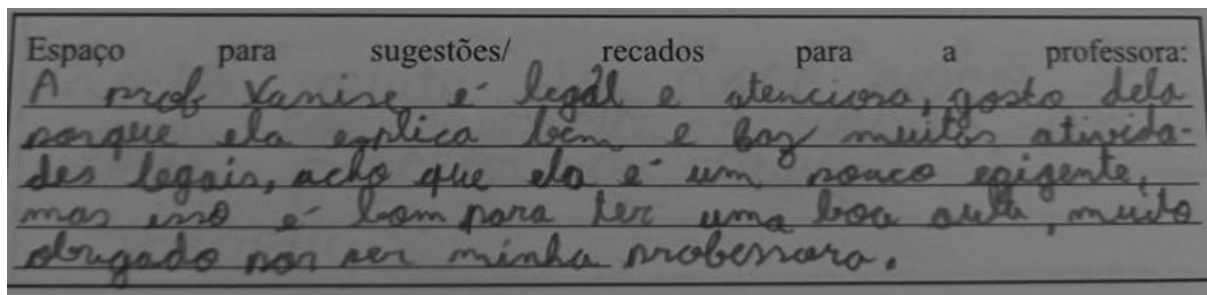 Espaço para sugestões/ recados para a professora:
A prof Vanise é legal e atenciosa, gosto dela
porque ela explica bem e faz muitas ativida-
des legais, acho que ela é um pouco exigente,
mas isso é bom para ter uma boa aula, muito
obrigado por ser minha professora.